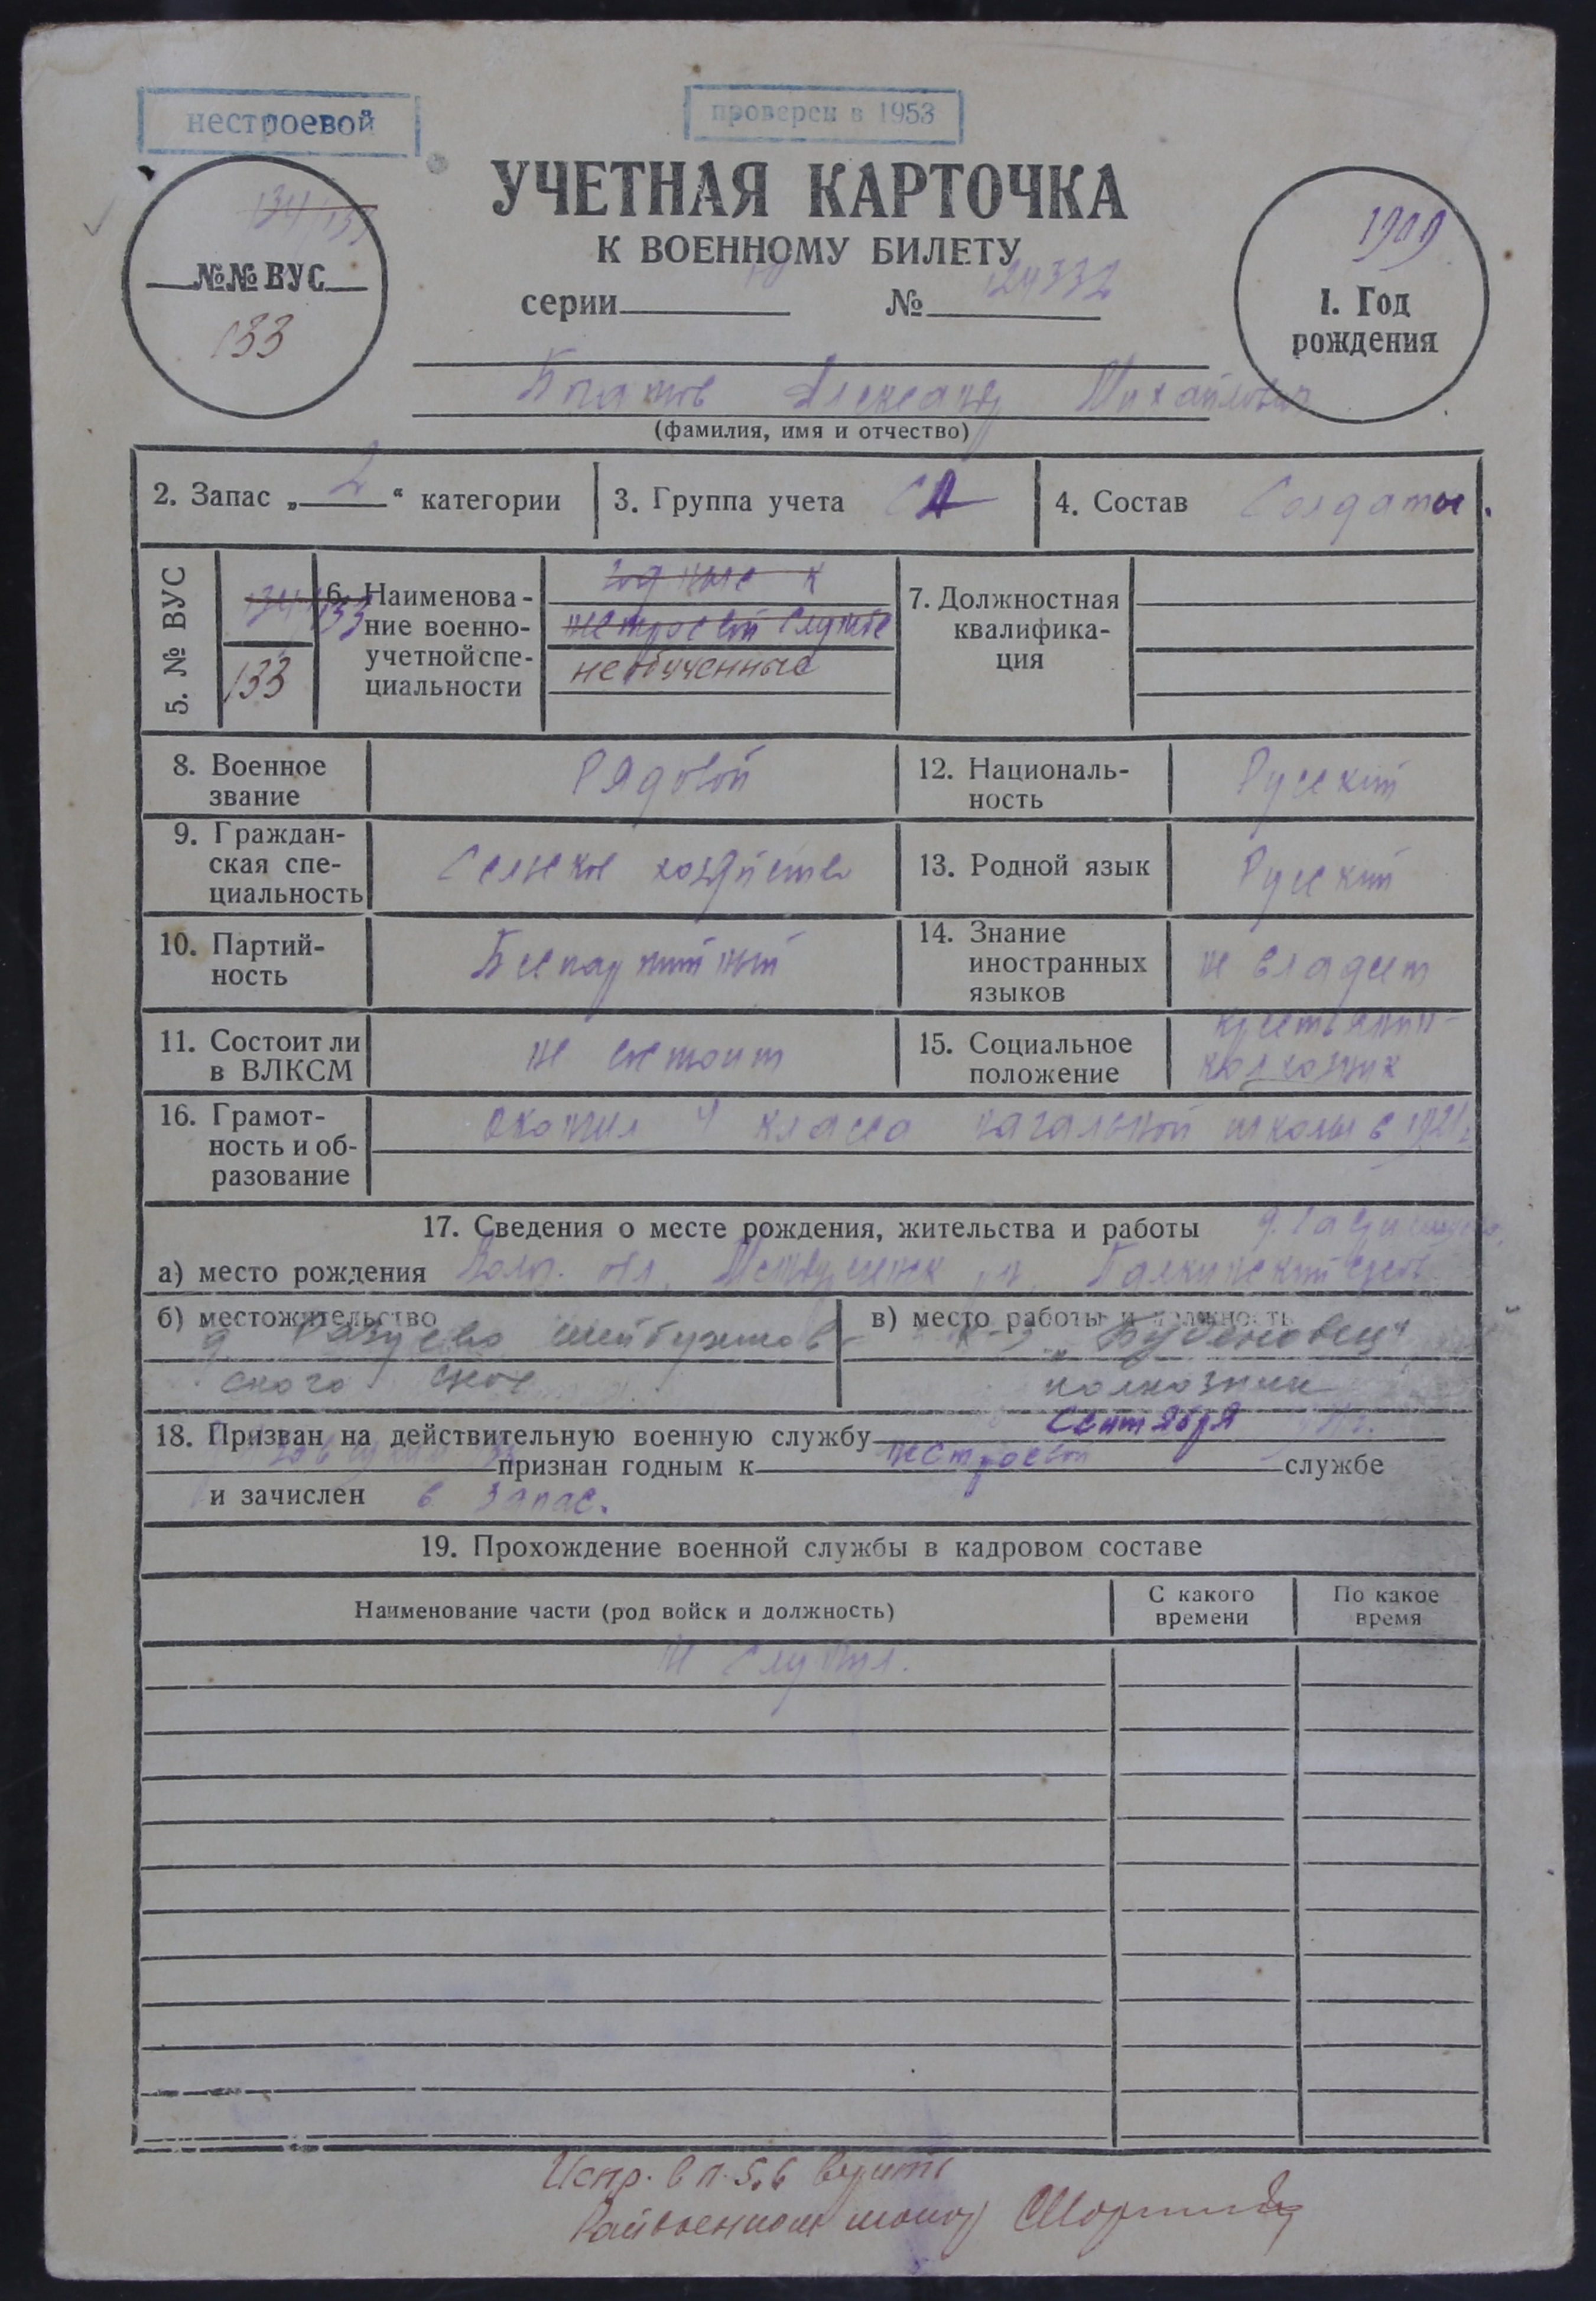 нестроевой
проверен в 1953
УЧЕТНАЯ КАРТОЧКА
К ВОЕННОМУ БИЛЕТУ
серии № 124332
134/133
№№ ВУС
133
1909
1. Год
рождения
Богатов Александр Михайлович
(фамилия, имя и отчество)
2. Запас „ 2 “ категории
3. Группа учета СА
4. Состав Солдаты.
5. № ВУС
134/133
133
6. Наименова-
ние военно-
учетной спе-
циальности
годные к
нестроевой службе
необученные
7. Должностная
квалифика-
ция
8. Военное
звание
Рядовой
12. Националь-
ность
Русский
9. Граждан-
ская спе-
циальность
Сельское хозяйство
13. Родной язык
Русский
10. Партий-
ность
Беспартийный
14. Знание
иностранных
языков
не владеет
11. Состоит ли
в ВЛКСМ
не состоит
15. Социальное
положение
крестьянин-
колхозник
16. Грамот-
ность и об-
разование
окончил 4 класса начальной школы в 1921 г.
17. Сведения о месте рождения, жительства и работы
а) место рождения Волог. обл.
б) местожительство
д.
ского
в) место работы и должность
к-з „Буденовец“
колхозник
18. Призван на действительную военную службу Сентября
признан годным к нестроевой службе
и зачислен в запас.
19. Прохождение военной службы в кадровом составе
Наименование части (род войск и должность)
С какого
времени
По какое
время
не служил.
Испр. в п. 5,6 верить
Райвоенком майор